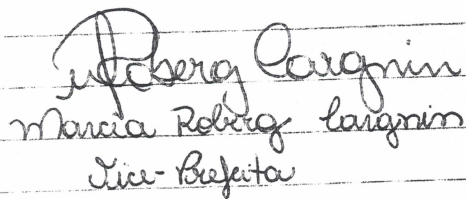 MRoberg Cargnin
Marcia Roberg Cargnin
Vice-Prefeita